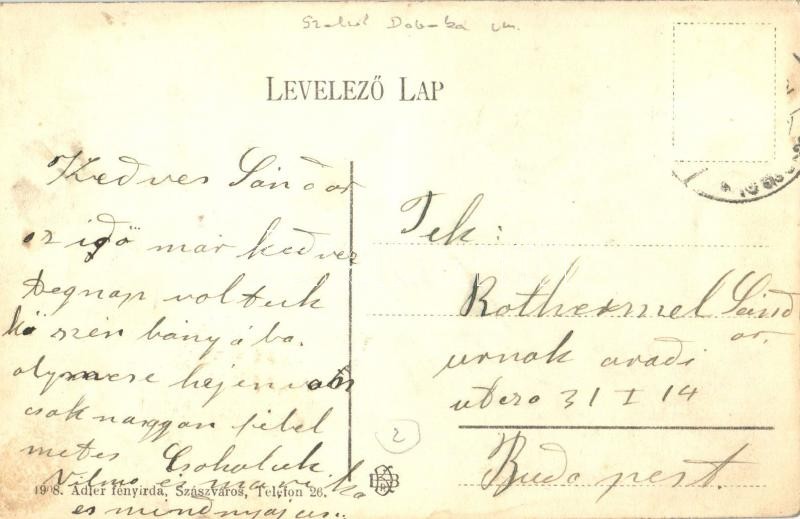 LEVELEZŐ LAP
Kedves Sándor
az idő már kedvez
tegnap voltuk
kő szén bányába.
olymese hejen van
csak nagyon félel
metes Csokoluk
Vilmos és mariska
és mindnyájan.
Tek:
Rothermel Sánd
or.
urnak aradi
utcza 31 I 14
Budapest.
2
1908. Adler fényirda, Szászváros, Telefon 26.